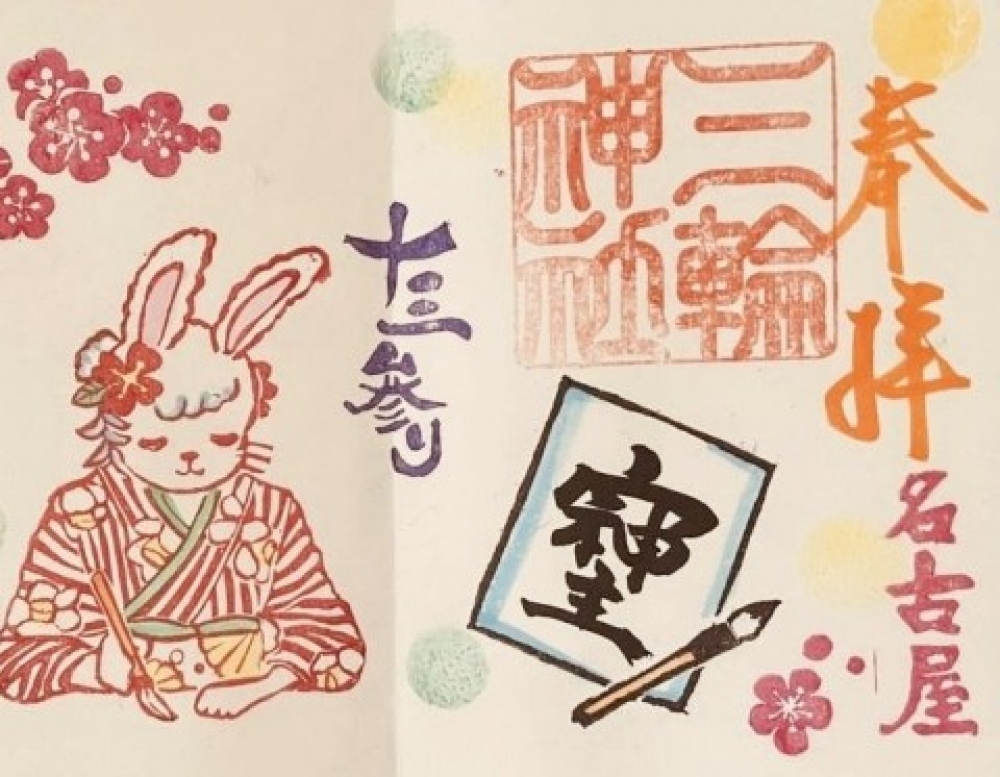 奉拝
名古屋
三輪
神社
十三參り